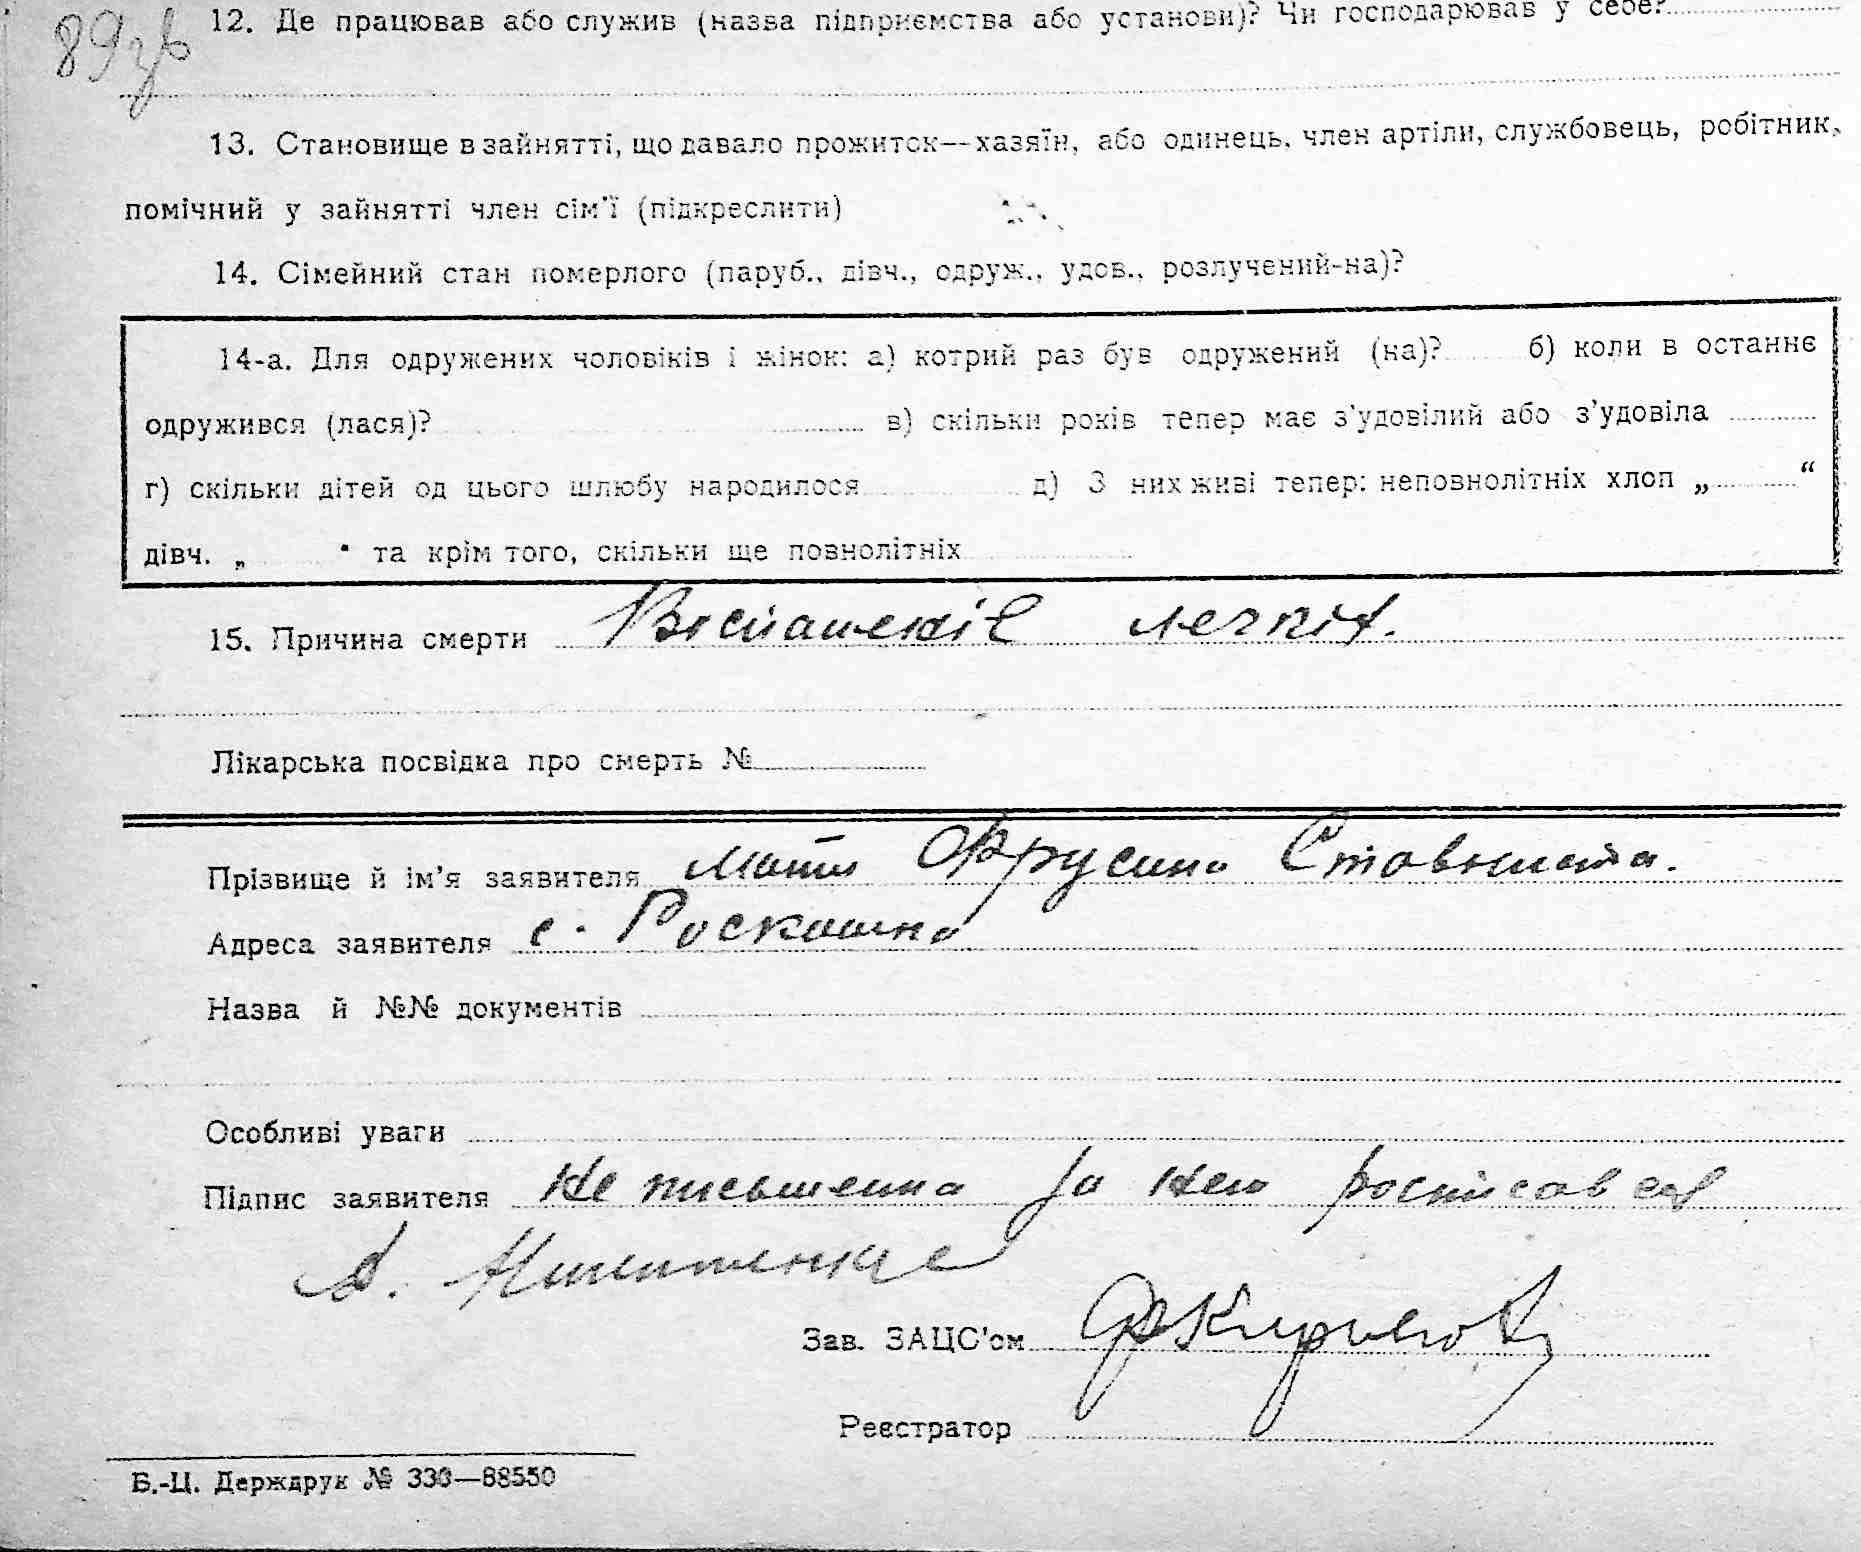 89зв
12. Де працював або служив (назва підприємства або установи)? Чи господарював у себе?
13. Становище в зайнятті, що давало прожиток—хазяїн, або одинець, член артіли, службовець, робітник,
помічний у зайнятті член сім'ї (підкреслити)
14. Сімейний стан померлого (паруб., дівч., одруж., удов., розлучений-на)?
14-а. Для одружених чоловіків і жінок: а) котрий раз був одружений (на)? б) коли в останнє
одружився (лася)? в) скільки років тепер має з'удовілий або з'удовіла
г) скільки дітей од цього шлюбу народилося д) З них живі тепер: неповнолітніх хлоп „ “
дівч. „ “ та крім того, скільки ще повнолітніх
15. Причина смерти
Лікарська посвідка про смерть №
Прізвище й ім'я заявителя Мати Фрусина
Адреса заявителя с. Роскошна
Назва й №№ документів
Особливі уваги
Підпис заявителя не письменна за нею росписався
А.
Зав. ЗАЦС'ом
Реєстратор
Б.-Ц. Держдрук № 330—88550